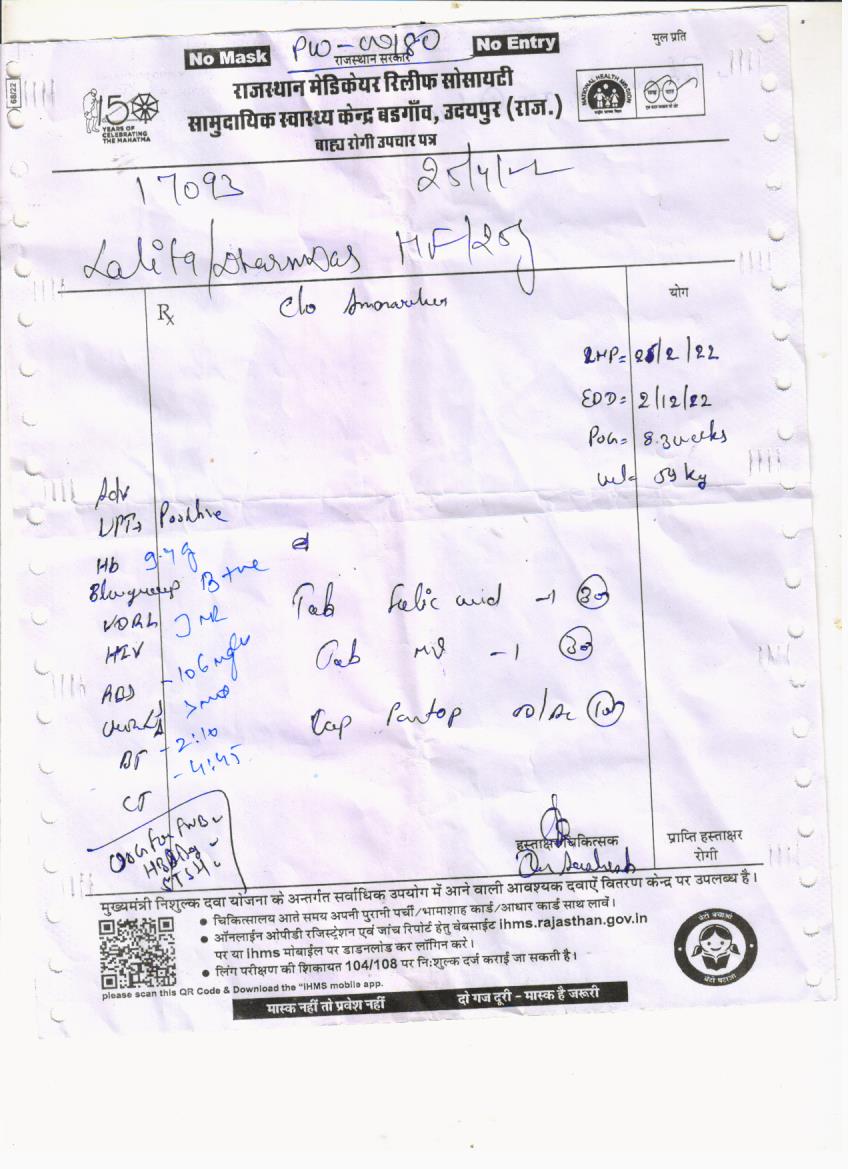 No Mask PW- No Entry मुल प्रति
राजस्थान सरकार
राजस्थान मेडिकेयर रिलीफ सोसायटी
सामुदायिक स्वास्थ्य केन्द्र बडगाँव, उदयपुर (राज.)
बाह्य रोगी उपचार पत्र
68/22
150
YEARS OF
CELEBRATING
THE MAHATMA
NATIONAL HEALTH MISSION
17093 25/4/22
Lalita/Dharmdas
Rx C/o योग
LMP= 25/2/22
EDD= 2/12/22
POG= 8.3 weeks
59 kg
Adv
UPT Positive
Hb
Blood group B +ve
VDRL NR
HIV
Tab Folic acid -1 30
Tab -1 30
RBS - 106
Cap Pantop 10
BT - 2:10
CT - 4:45
USG For FWB
TSH
हस्ताक्षर चिकित्सक
प्राप्ति हस्ताक्षर
रोगी
मुख्यमंत्री निशुल्क दवा योजना के अन्तर्गत सर्वाधिक उपयोग में आने वाली आवश्यक दवाऐं वितरण केन्द्र पर उपलब्ध है।
• चिकित्सालय आते समय अपनी पुरानी पर्ची/भामाशाह कार्ड/आधार कार्ड साथ लावें।
• ऑनलाईन ओपीडी रजिस्ट्रेशन एवं जांच रिपोर्ट हेतु वेबसाईट ihms.rajasthan.gov.in
पर या ihms मोबाईल पर डाडनलोड कर लॉगिन करे।
• लिंग परीक्षण की शिकायत 104/108 पर नि:शुल्क दर्ज कराई जा सकती है।
please scan this QR Code & Download the "IHMS mobile app.
मास्क नहीं तो प्रवेश नहीं दो गज दूरी - मास्क है जरूरी
बेटी बचाओ
बेटी पढाओ